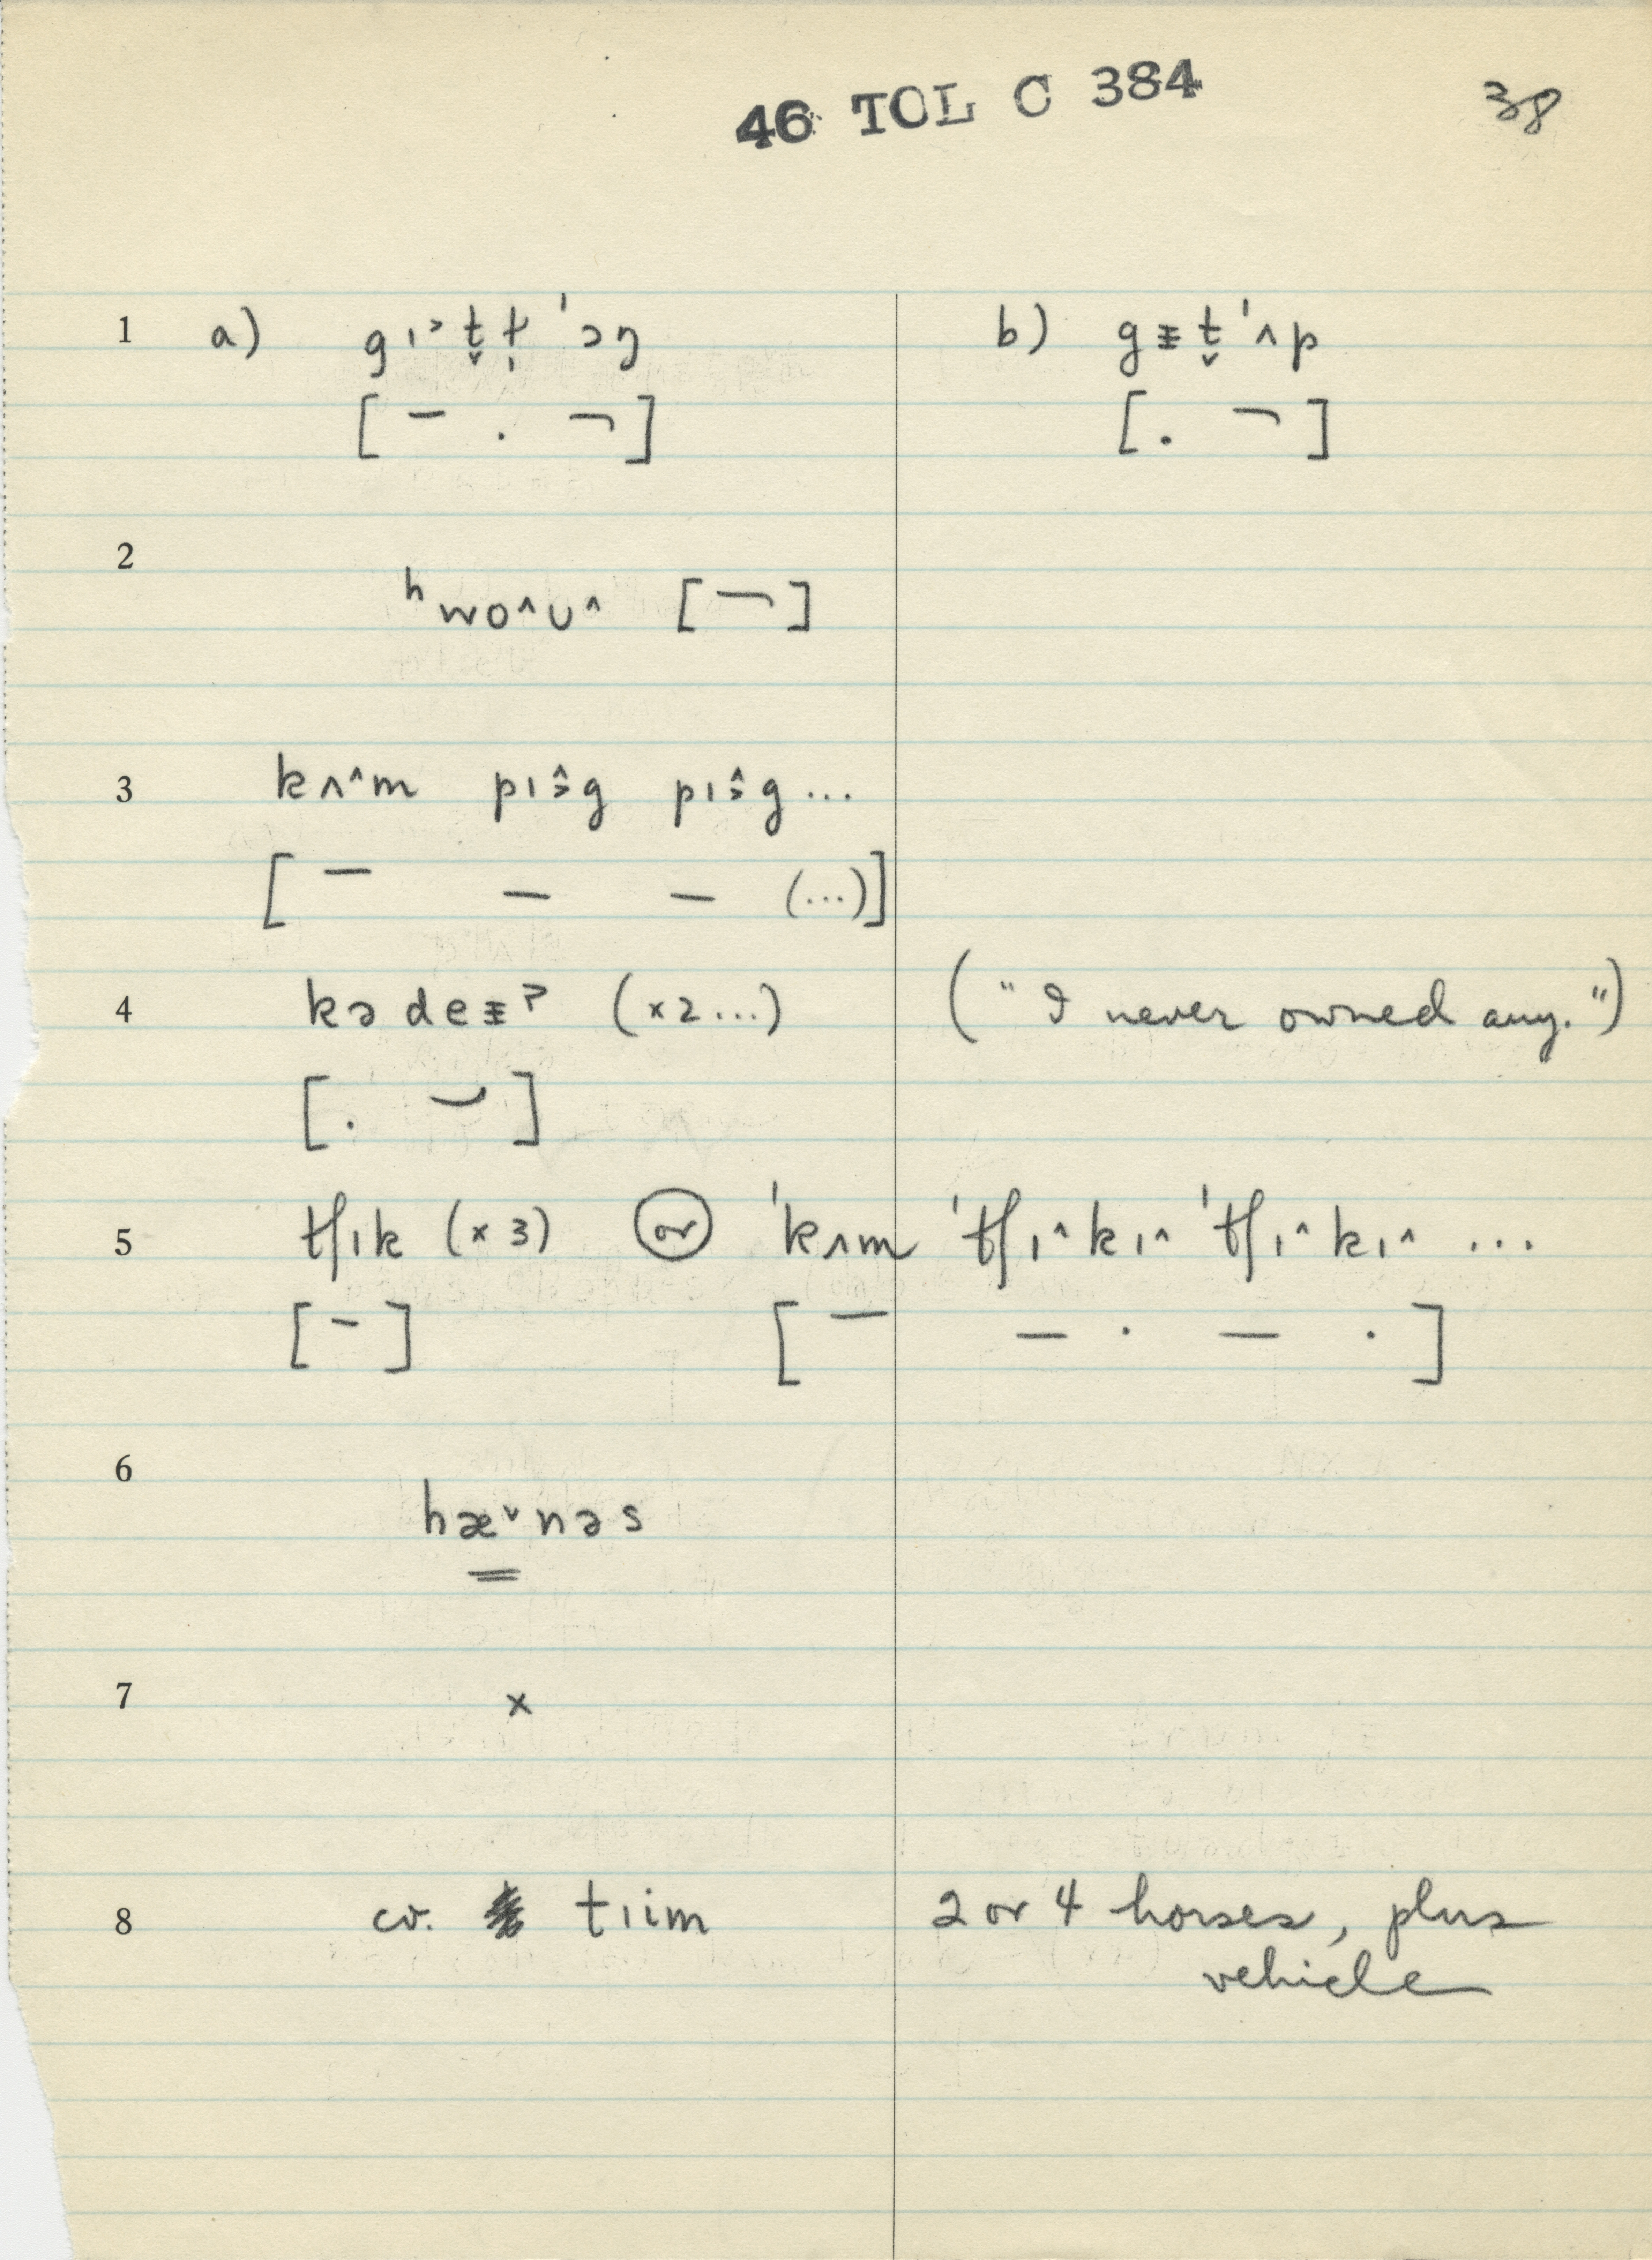 46 TOL C 384 38
1 a) gɪ˃t̬ṭˈɔŋ b) gᵻt̬ˈʌp
[ – . ¬ ] [ . ¬ ]
2
ʰwo^ʊ^ [ ¬ ]
3 kʌ^m pɪɜ̂g pɪɜ̂g ...
[ – – – (...)]
4 kədeᵻʔ (×2...) ("I never owned any.")
[ . ⌣ ]
5 tʃɪk (×3) or ˈkʌm ˈtʃɪ^kɪ^ ˈtʃɪ^kɪ^ ...
[ - ] [ – – · – · ]
6
hæ˅nəs
7 ×
8 cv. tɪim 2 or 4 horses, plus
vehicle